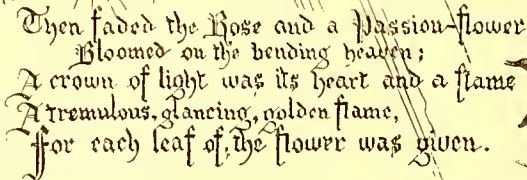 Then faded the Rose and a Passion-flower
Bloomed on the bending heaven;
A crown of light was its heart and a flame
A tremulous, glancing, golden flame,
For each leaf of, the flower was given.